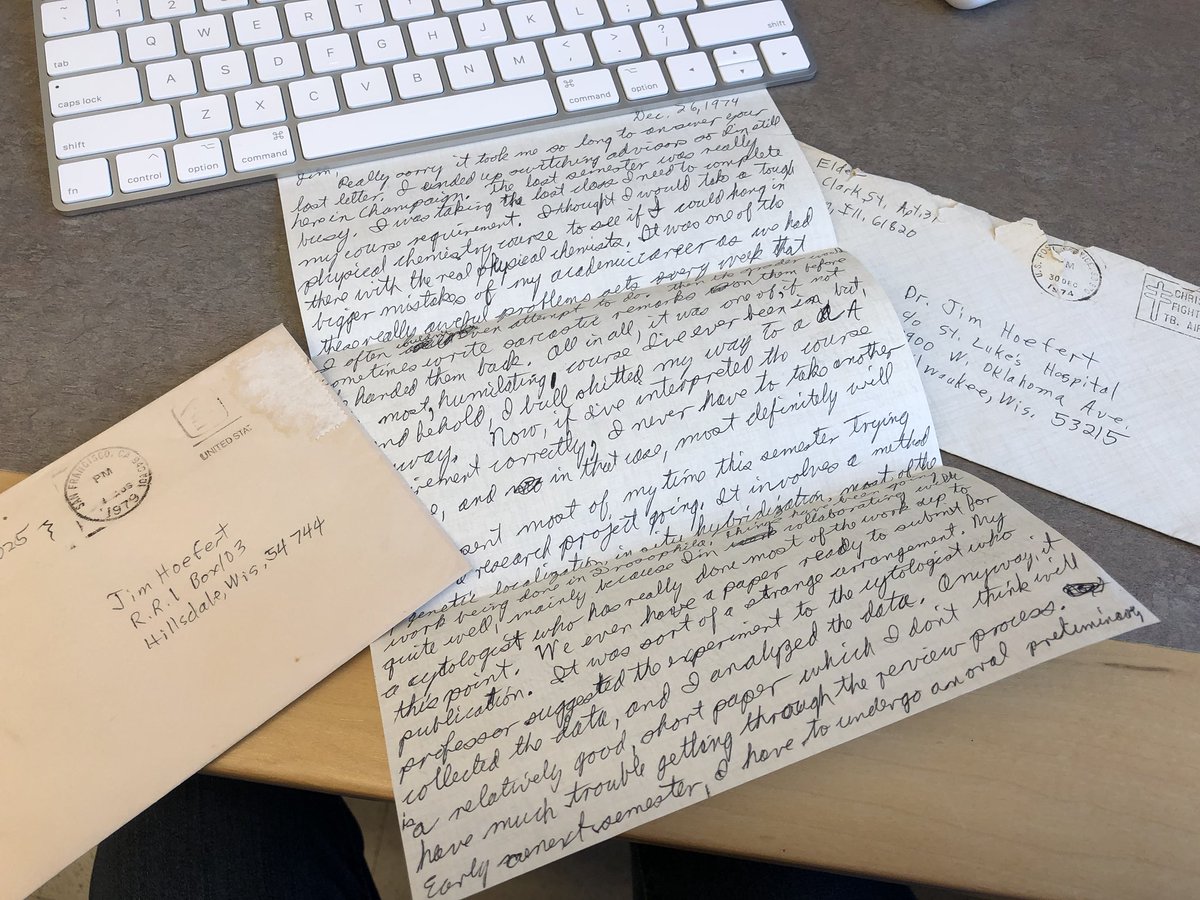 ~ 1 2
Q W E R T Y U I O P
tab
A S D F G H J K L ; "
caps lock
Z X C V B N M < , > . ? / shift
shift
fn control option command command option
Dec. 26, 1974
Jim,
Really sorry it took me so long to answer your
last letter. I ended up switching advisors so I'm still
here in Champaign. The last semester was really
busy. I was taking the last class I need to complete
my course requirement. I thought I would take a tough
physical chemistry course to see if I could hang in
there with the real physical chemists. It was one of the
bigger mistakes of my academic career as we had
these really awful problems sets every week that
I often even attempt to do. then the grader would
sometimes write sarcastic remarks on them before
handed them back. All in all, it was one of, it not
most, humiliating course I've ever been in but,
and behold, I bull shitted my way to a A
way. Now, if I've interpreted the course
irement correctly, I never have to take another
e, and in that case, most definitely will
spent most of my time this semester trying
a research project going. It involves a method
of genetic localization, in situ hybridization, most of the
work being done in Drosophila. things have been going
quite well, mainly because I'm collaborating with
a cytologist who has really done most of the work up to
this point. We even have a paper ready to submit for
publication. It was sort of a strange arrangement. My
professor suggested the experiment to the cytologist who
collected the data, and I analyzed the data. Anyway, it
is a relatively good, short paper which I don't think will
have much trouble getting through the review process.
Early next semester, I have to undergo an oral preliminary
Elder
Clark St. Apt. 31
Ill. 61820
30 DEC
1974
CHRI
FIGHT
TB.
Dr. Jim Hoefert
c/o St. Luke's Hospital
900 W. Oklahoma Ave.
waukee, Wis. 53215
UNITED STA
SAN FRANCISCO, CA
PM
1979
025
Jim Hoefert
R.R. 1 Box 103
Hillsdale, Wis, 54744